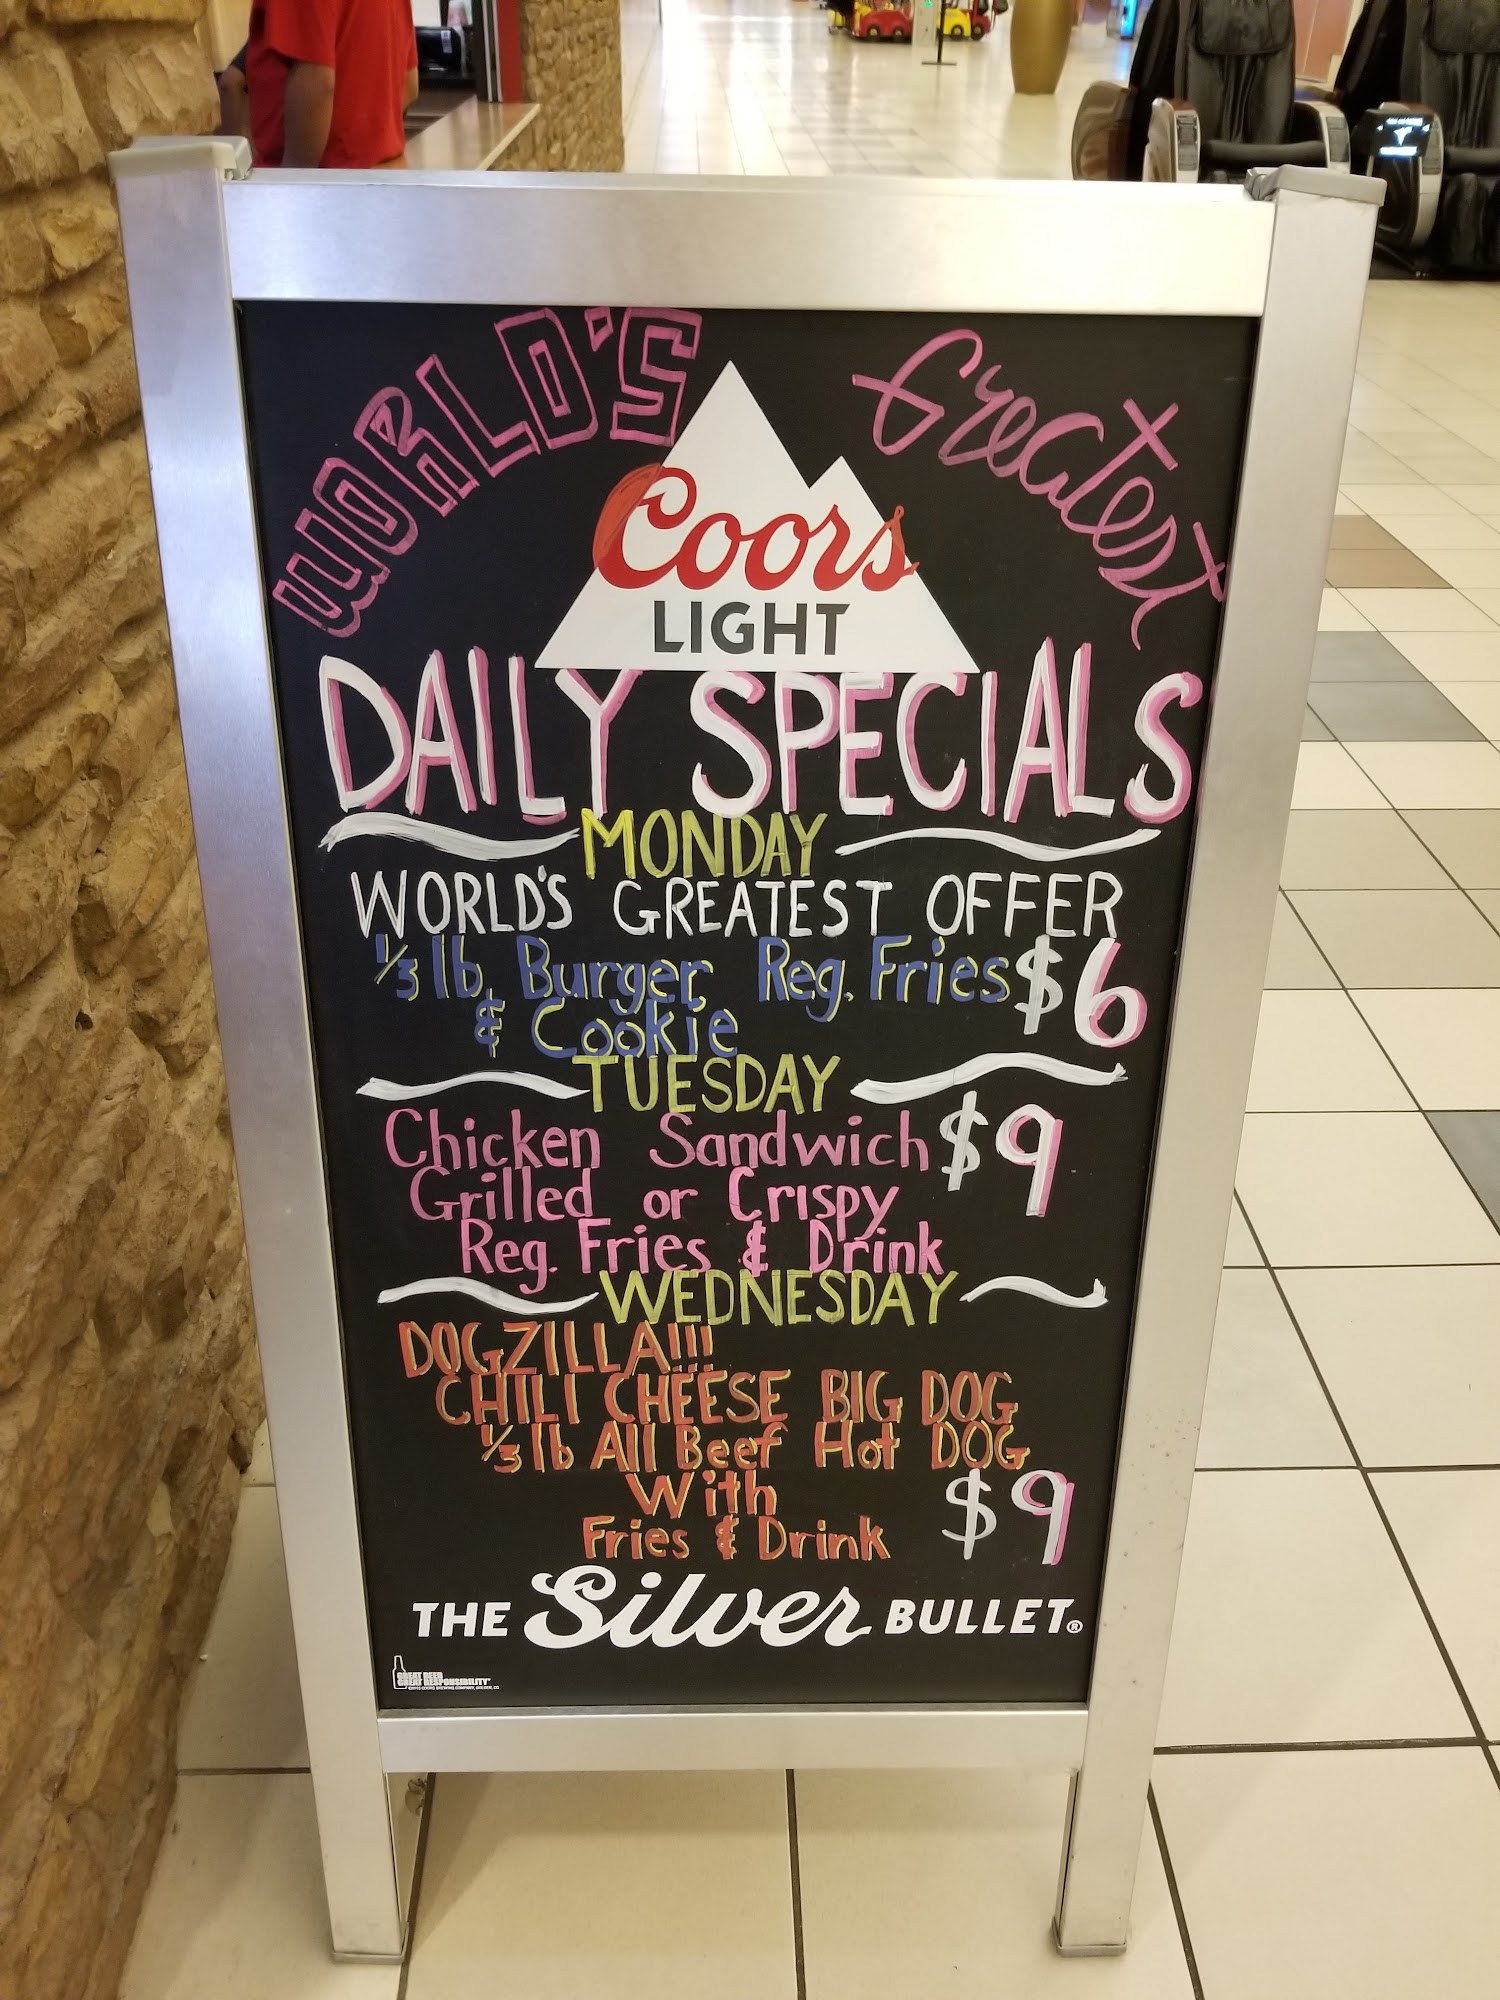 WORLD'S Greatest
Coors
LIGHT
DAILY SPECIALS
MONDAY
WORLD'S GREATEST OFFER
1/3 lb Burger Reg. Fries $6
& Cookie
TUESDAY
Chicken Sandwich $9
Grilled or Crispy
Reg. Fries & Drink
WEDNESDAY
DOGZILLA!!!
CHILI CHEESE BIG DOG
1/3 lb All Beef Hot DOG
With $9
Fries & Drink
THE Silver BULLET®
GREAT BEER
GREAT RESPONSIBILITY